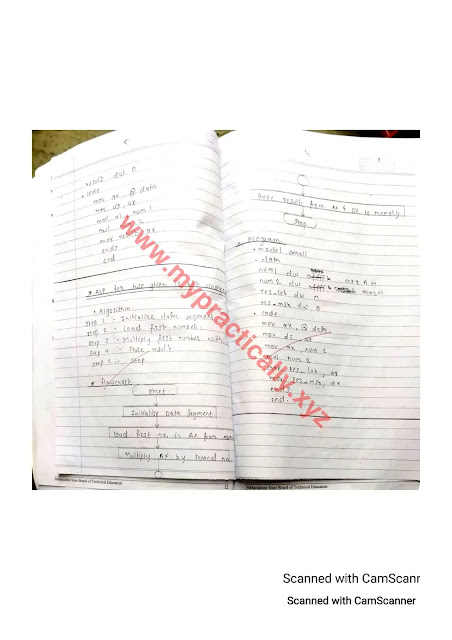 result dw 0
. code
mov ax, @ data
mov ds, ax
mov al, num 1
mul
mov result, ax
ends
end
* ALP for two given
. Algorithm
Step 1 :- Initialize data segment
Step 2 :- Load first number
Step 3 :- Multiply first number with
Step 4 :- Store result
Step 5 :- Stop
* Flowchart
Start
Initialize Data Segment
Load first no. in AX from
Multiply AX by second no.
Maharashtra State Board of Technical Education
Store result from AX & DX to memory
Stop
Program
. model small
. data
num1 dw
num 2 dw
res_lsb dw 0
res_msb dw 0
. code
mov ax, @ data
mov ds, ax
mov ax, num 1
mul num 2
mov res_lsb, ax
mov res_msb, dx
ends
end.
Maharashtra State Board of Technical Education
www.mypractically.xyz
Scanned with CamScanr
Scanned with CamScanner